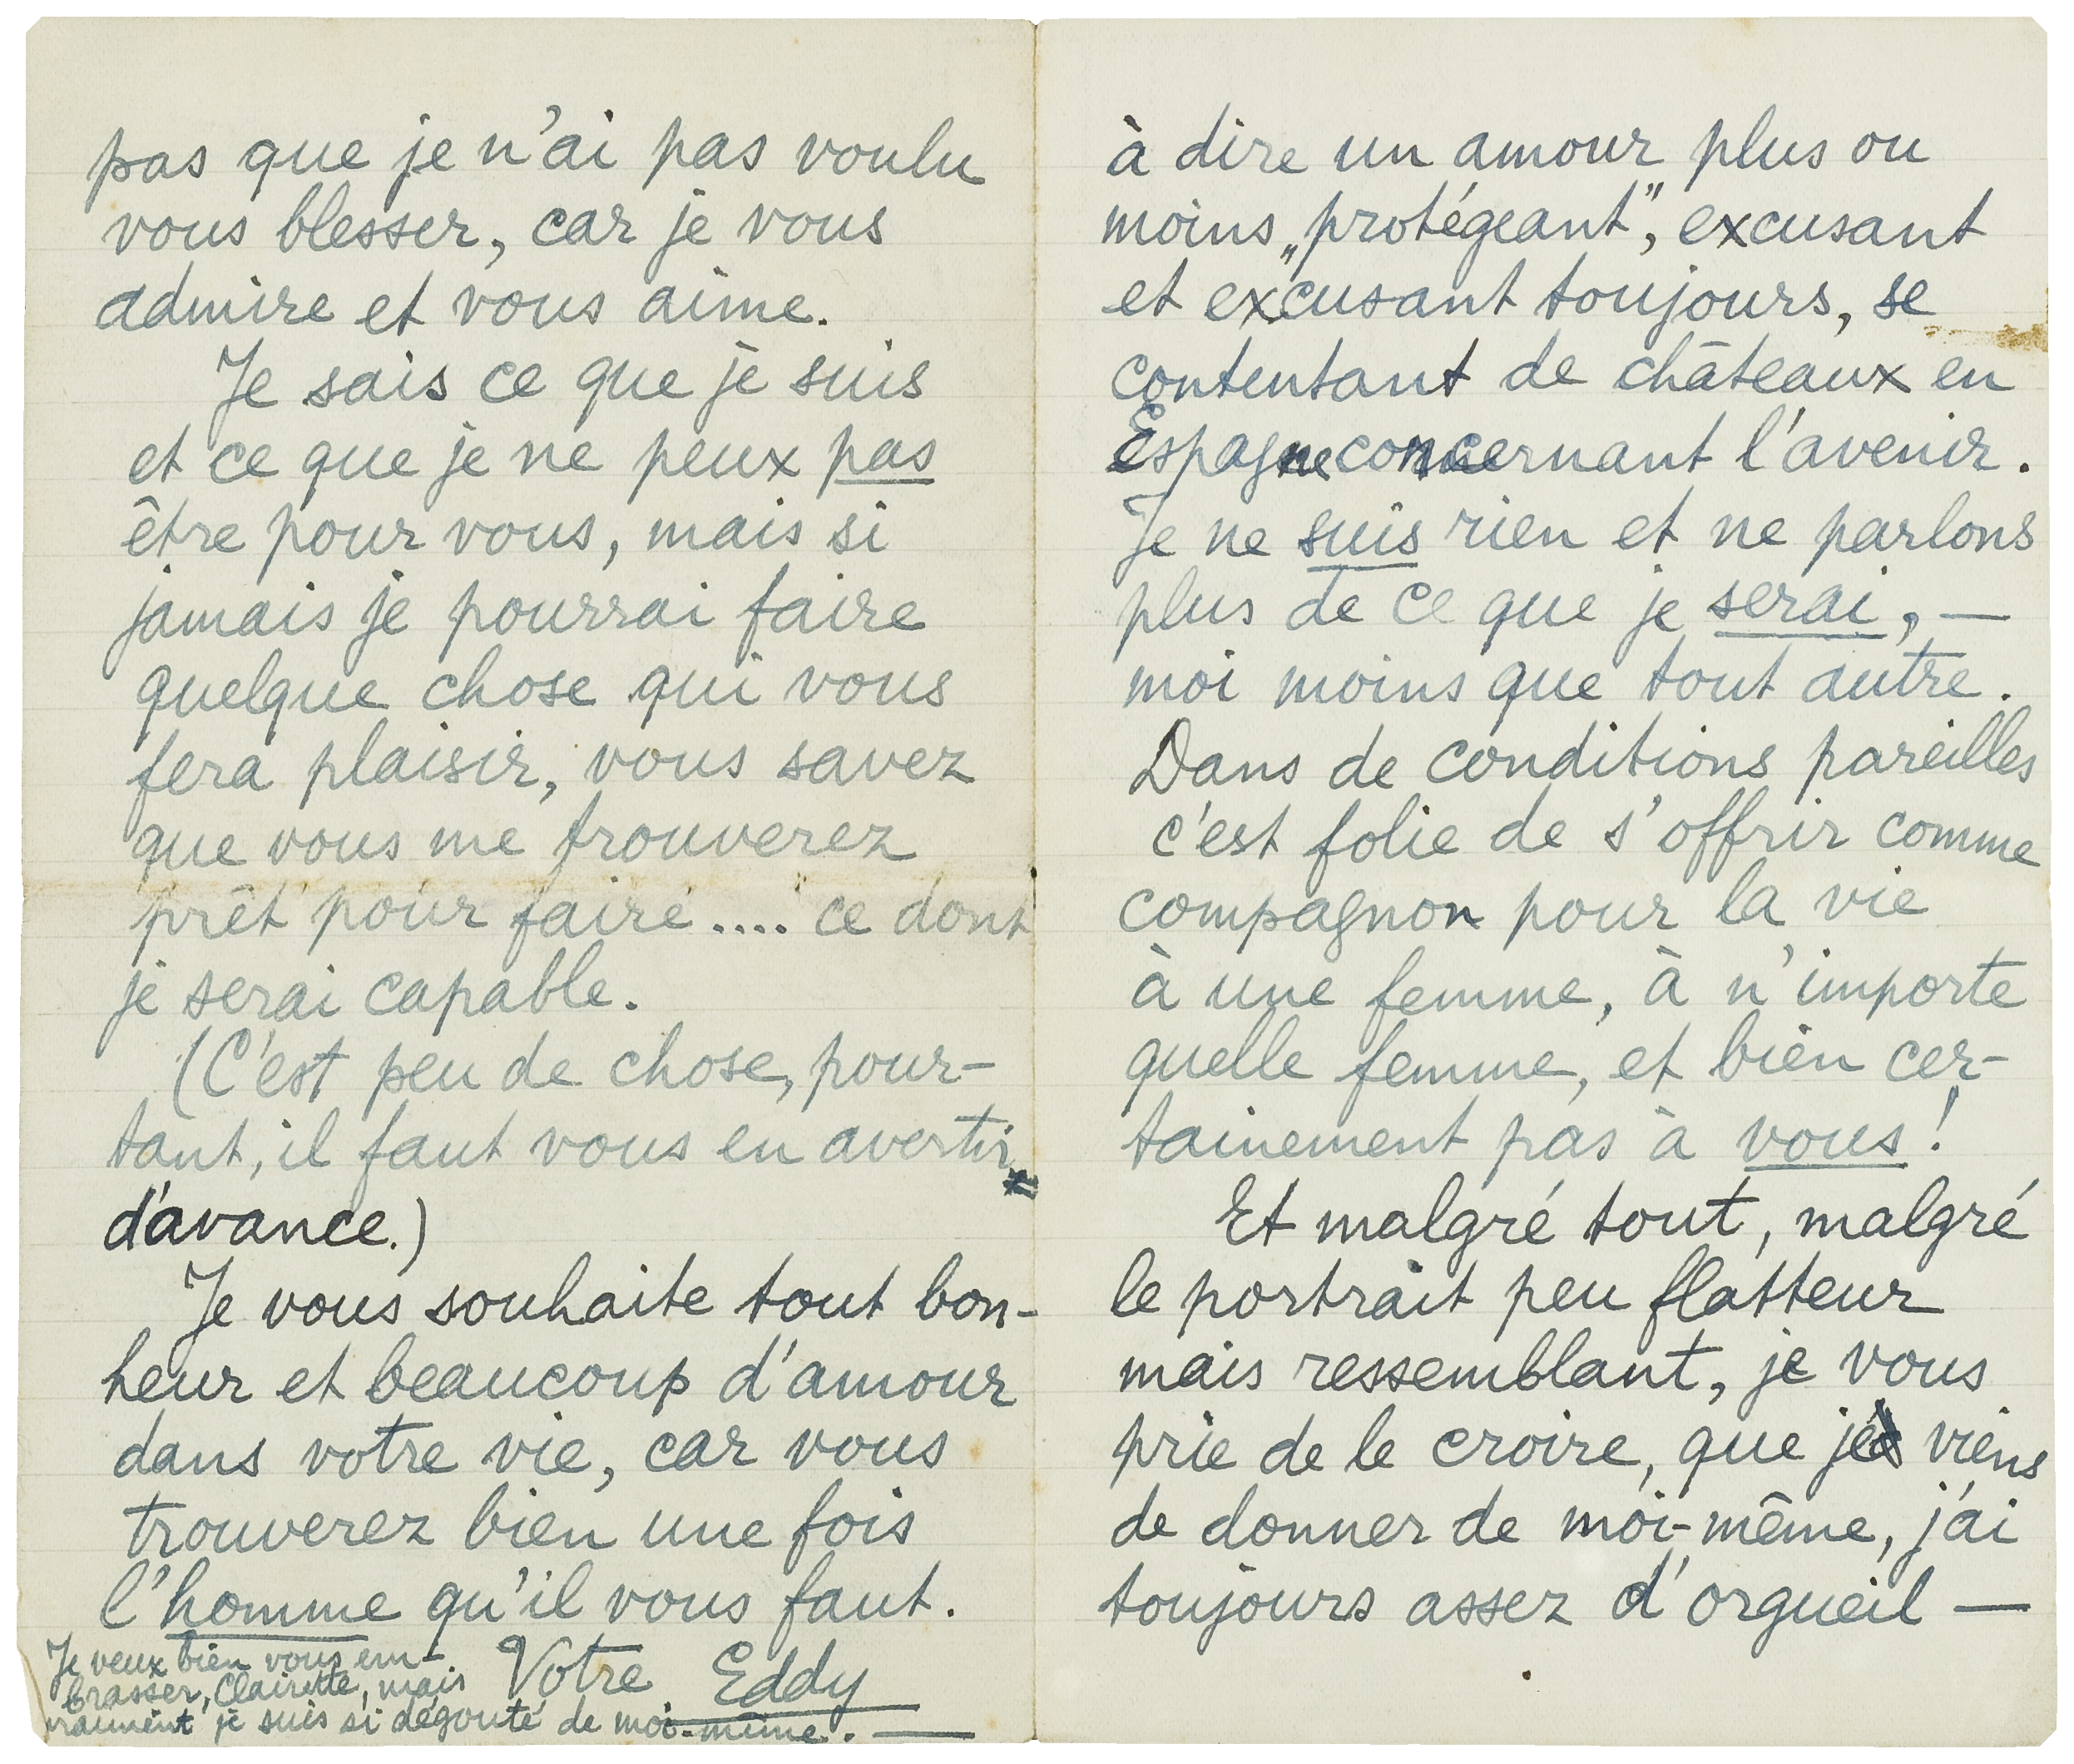 pas que je n'ai pas voulu
vous blesser, car je vous
admire et vous aime.
Je sais ce que je suis
et ce que je ne peux pas
être pour vous, mais si
jamais je pourrai faire
quelque chose qui vous
fera plaisir, vous savez
que vous me trouverez
prêt pour faire .... ce dont
je serai capable.
(C'est peu de chose, pour-
tant, il faut vous en avertir
d'avance.)
Je vous souhaite tout bon-
heur et beaucoup d'amour
dans votre vie, car vous
trouverez bien une fois
l'homme qu'il vous faut.
Votre Eddy
Je veux bien vous em-
brasser, Clairette, mais
vraiment je suis si dégouté de moi-même. —
à dire un amour plus ou
moins „protégeant", excusant
et excusant toujours, se
contentant de châteaux en
Espagne concernant l'avenir.
Je ne suis rien et ne parlons
plus de ce que je serai, —
moi moins que tout autre.
Dans de conditions pareilles
c'est folie de s'offrir comme
compagnon pour la vie
à une femme, à n'importe
quelle femme, et bien cer-
tainement pas à vous!
Et malgré tout, malgré
le portrait peu flatteur
mais ressemblant, je vous
prie de le croire, que je viens
de donner de moi-même, j'ai
toujours assez d'orgueil —